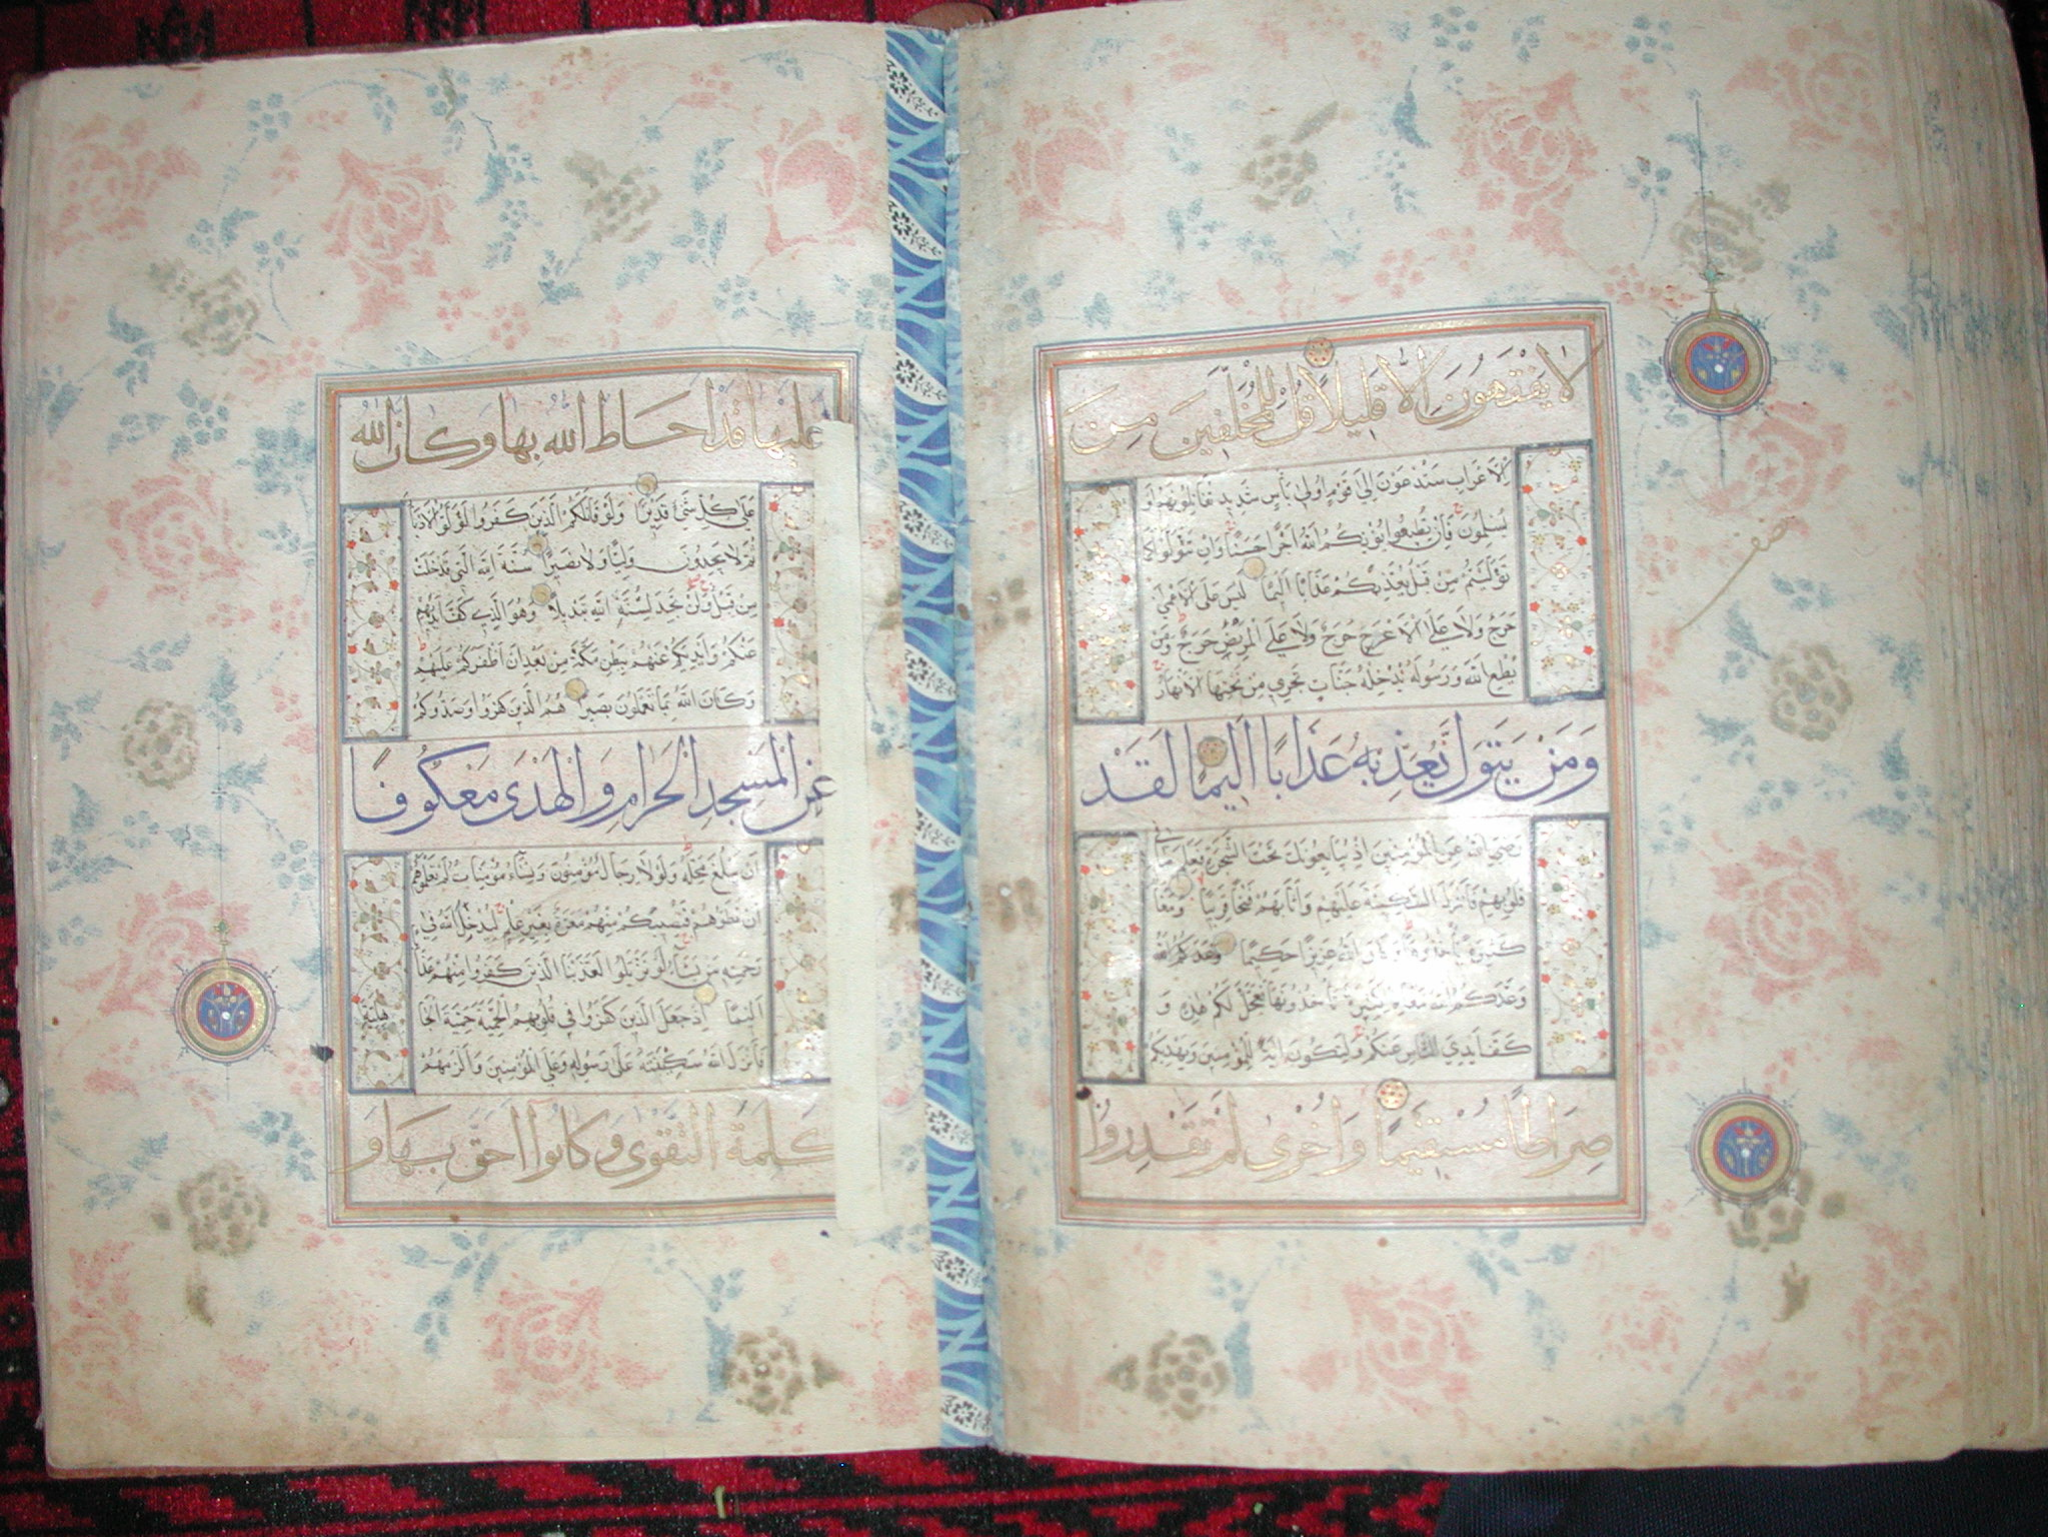 لا يَفْقَهُونَ اِلَّا قَلِيلًا قُلْ لِلْمُخَلَّفِينَ مِنَ
الاَعراب ستدعون الى قوم اولي باس شديد تقاتلونهم او
يسلمون فان تطيعوا يؤتكم الله اجرا حسنا وان تتولوا كما
توليتم من قبل يعذبكم عذابا اليما ليس على الاعمى
حرج ولا على الاعرج حرج ولا على المريض حرج ومن
يطع الله ورسوله يدخله جنات تجري من تحتها الانهار
وَمَنْ يَتَوَلَّ يُعَذِّبْهُ عَذَابًا اَلِيمًا لَقَدْ
رضي الله عن المؤمنين اذ يبايعونك تحت الشجرة فعلم ما في
قلوبهم فانزل السكينة عليهم واثابهم فتحا قريبا ومغا
كثيرة ياخذونها وكان الله عزيزا حكيما وعدكم الله
وعدكم الله مغانم كثيرة تاخذونها فعجل لكم هذه و
كف ايدي الناس عنكم ولتكون اية للمؤمنين ويهديكم
صِرَاطًا مُسْتَقِيمًا وَاُخْرَى لَمْ تَقْدِرُوا
نصف
عليها قد احاط الله بها وكان الله
على كل شئ قديرا ولو قاتلكم الذين كفروا لولوا الادبا
ثم لا يجدون وليا ولا نصيرا سنة الله التي قد خلت
من قبل ولن تجد لسنة الله تبديلا وهو الذي كف ايديهم
عنكم وايديكم عنهم ببطن مكة من بعد ان اظفركم عليهم
وكان الله بما تعملون بصيرا هم الذين كفروا وصدوكم
عَنِ الْمَسْجِدِ الْحَرَامِ وَالْهَدْىَ مَعْكُوفًا
ان يبلغ محله ولولا رجال مؤمنون ونساء مؤمنات لم تعلموهم
ان تطؤهم فتصيبكم منهم معرة بغير علم ليدخل الله في
رحمته من يشاء لو تزيلوا لعذبنا الذين كفروا منهم عذا
اليما اذ جعل الذين كفروا في قلوبهم الحمية حمية الجا
هلية
فانزل الله سكينته على رسوله وعلى المؤمنين والزمهم
كلمة التقوى وكانوا احق بها و